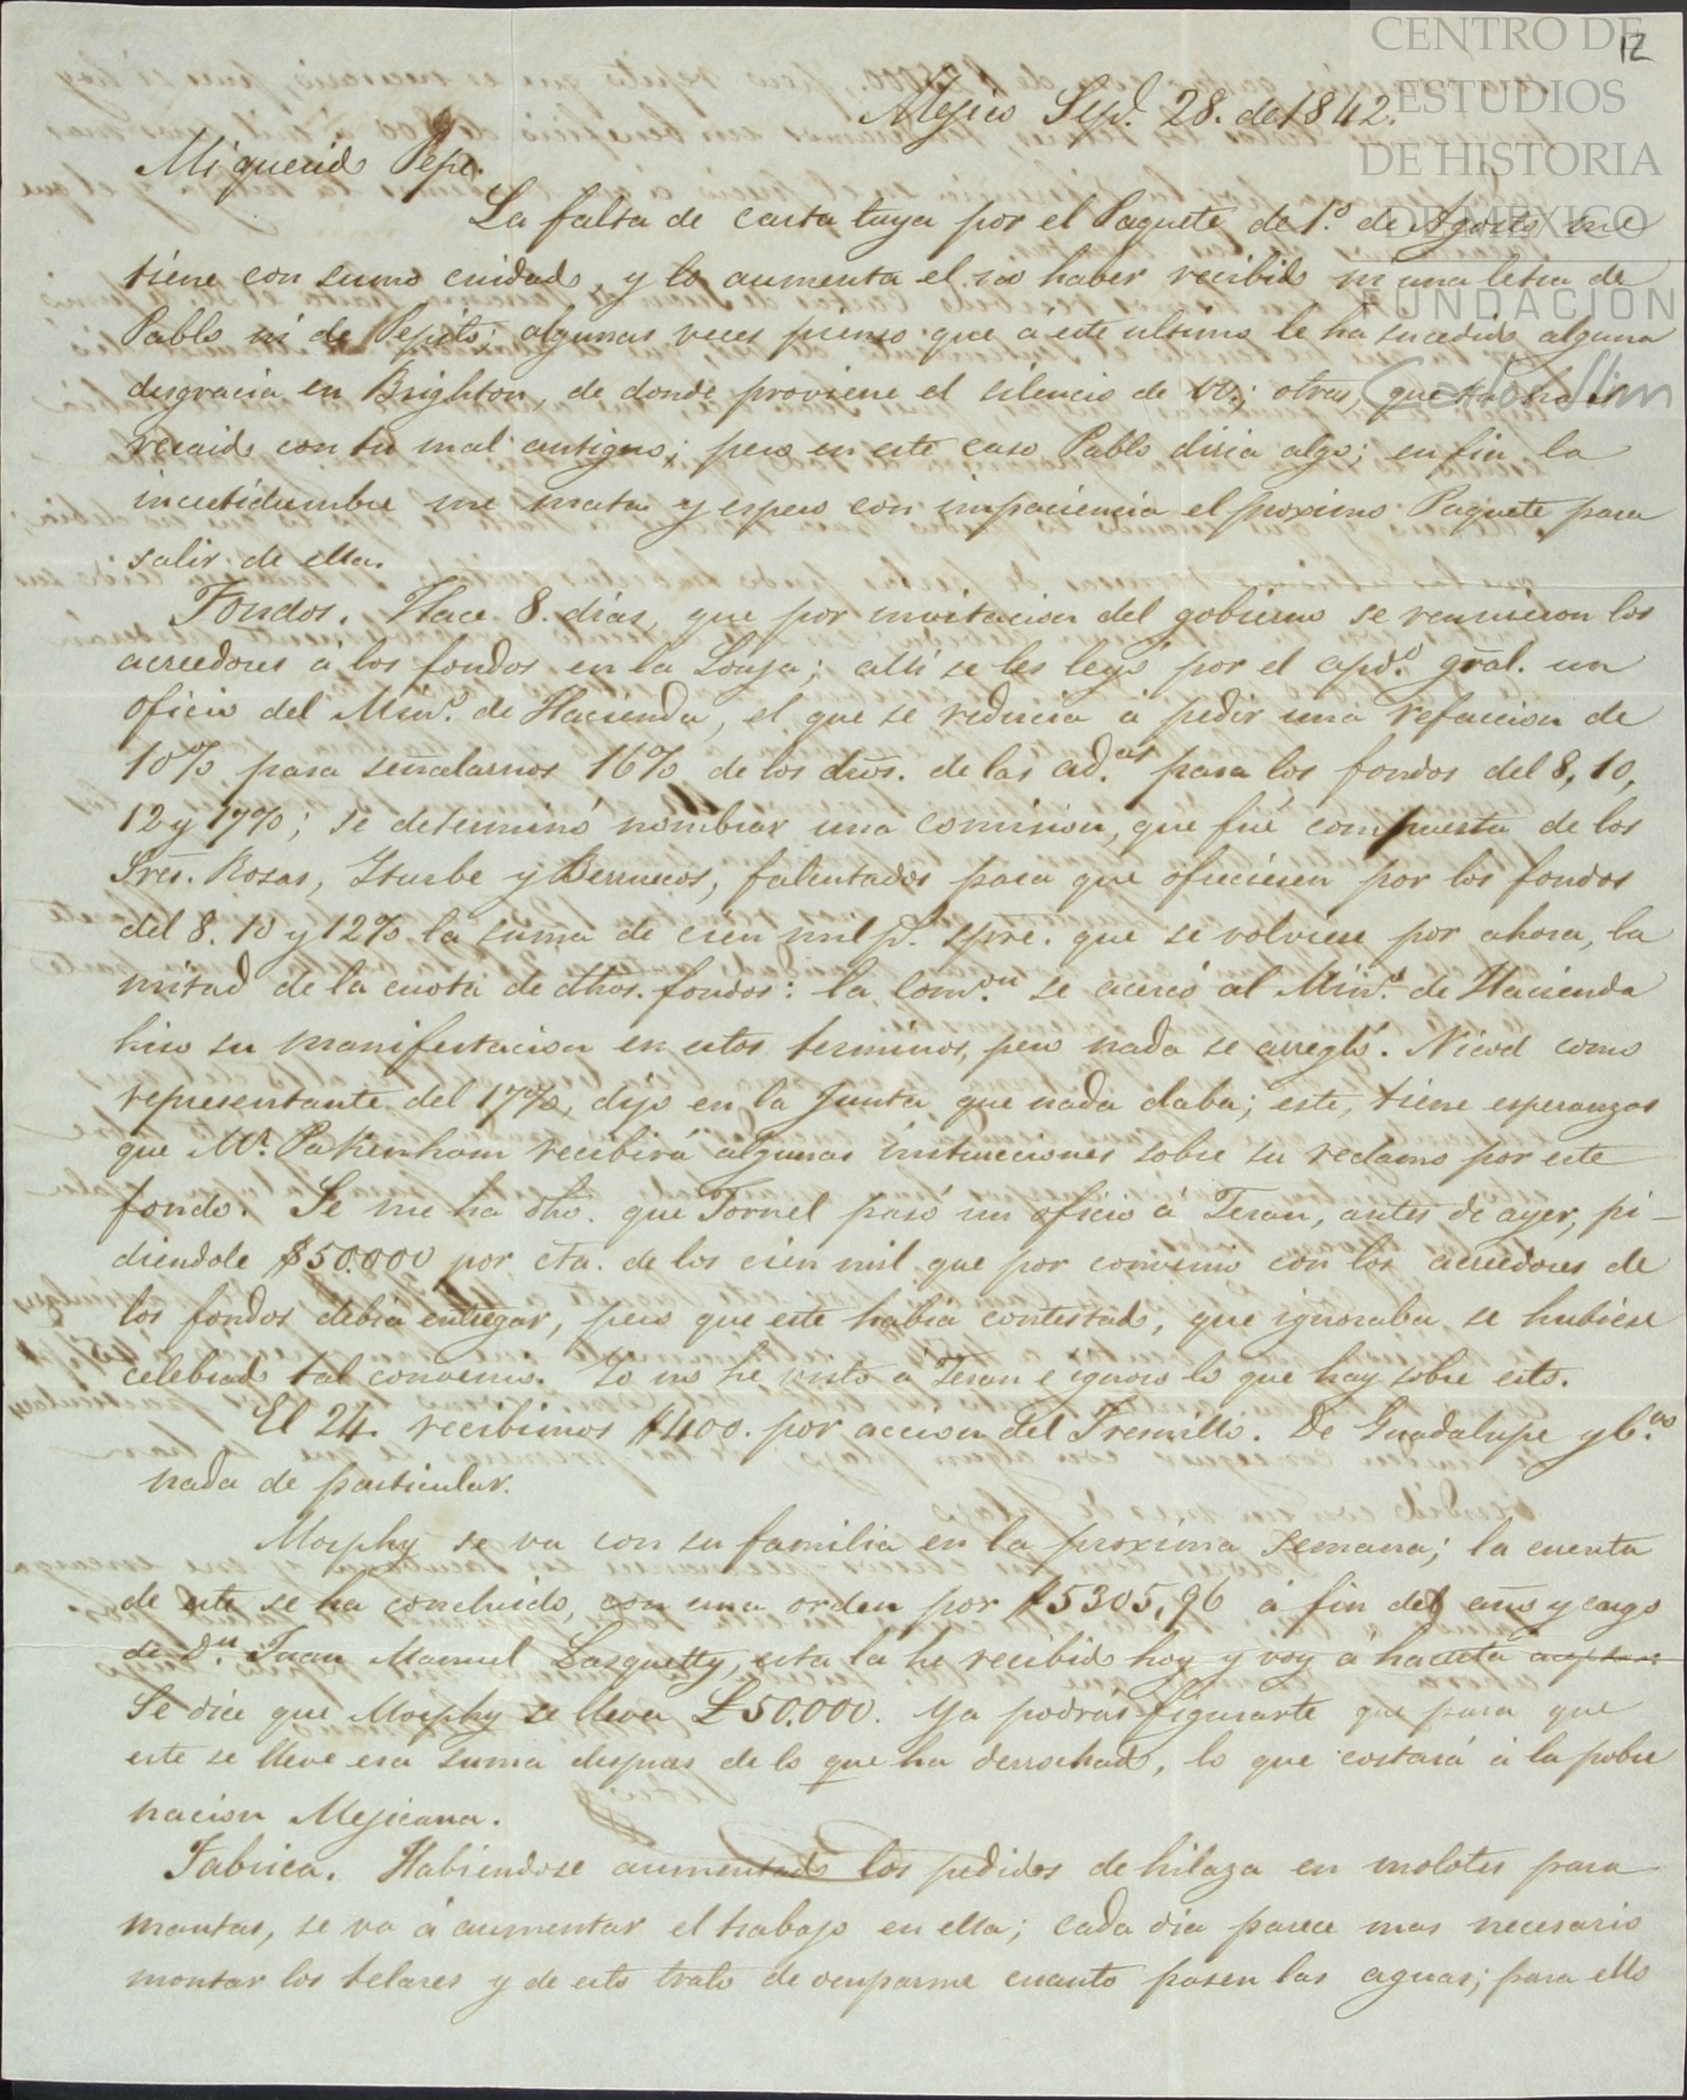 CENTRO DE
ESTUDIOS
DE HISTORIA
DE MEXICO
FUNDACION
Carlos Slim
12
Mejico Sep.e 28. de 1842.
Mi querido Pepe.
La falta de carta tuya por el Paquete de 1.o de Agosto me
tiene con sumo cuidado, y lo aumenta el no haber recibido ni una letra de
Pablo ni de Pepito; algunas veces pienso que á este ultimo le ha sucedido alguna
desgracia en Brighton, de donde proviene el silencio de VV.; otras, que tu has
recaido con tu mal antiguo; pero en este caso Pablo diria algo; en fin la
incertidumbre me mata y espero con impaciencia el proximo Paquete para
salir de ella.
Fondos. Hace 8. dias, que por invitacion del gobierno se reunieron los
acreedores á los fondos en la Lonja; alli se les leyó por el apd.o gral. un
oficio del Min.o de Hacienda, el que se reducia á pedir una refaccion de
10% para señalarnos 16% de los dros. de las ad.as para los fondos del 8, 10,
12 y 17%; se determinó nombrar una comision, que fué compuesta de los
Sres. Rosas, Iturbe y Berruecos, facultados para que ofreciesen por los fondos
del 8. 10 y 12% la suma de cien mil p.s spre. que se volviese por ahora, la
mitad de la cuota de dhos. fondos: la Com.on se acercó al Min.o de Hacienda
hizo su manifestacion en estos terminos, pero nada se arregló. Nicod como
representante del 17%, dijo en la Junta que nada daba; este, tiene esperanzas
que Mr. Pakenham recibirá algunas instrucciones sobre su reclamo por este
fondo. Se me ha dho. que Tornel pasó un oficio á Teran, antes de ayer, pi-
diendole $50.000 por cta. de los cien mil que por convenio con los acreedores de
los fondos debia entregar, pero que este habia contestado, que ignoraba se hubiese
celebrado tal convenio. Yo no he visto á Teran e ignoro lo que hay sobre esto.
El 24. recibimos $400. por accion del Fresnillo. De Guadalupe y C.as
nada de particular.
Morphy se va con su familia en la proxima semana; la cuenta
de este se ha concluido, con una orden por $5305,96 á fin del año y cargo
de D.n Juan Manuel Lasquetty, esta la he recibido hoy y voy á hacerla aceptar.
Se dice que Morphy se lleva £50.000. Ya podrás figurarte que para que
este se lleve esa suma despues de lo que ha derrochado, lo que costará á la pobre
nacion Mejicana.
Fabrica. Habiendose aumentado los pedidos de hilaza en molotes para
mantas, se va á aumentar el trabajo en ella; cada dia parece mas necesario
montar los telares y de esto trato de ocuparme cuanto pasen las aguas; para ello